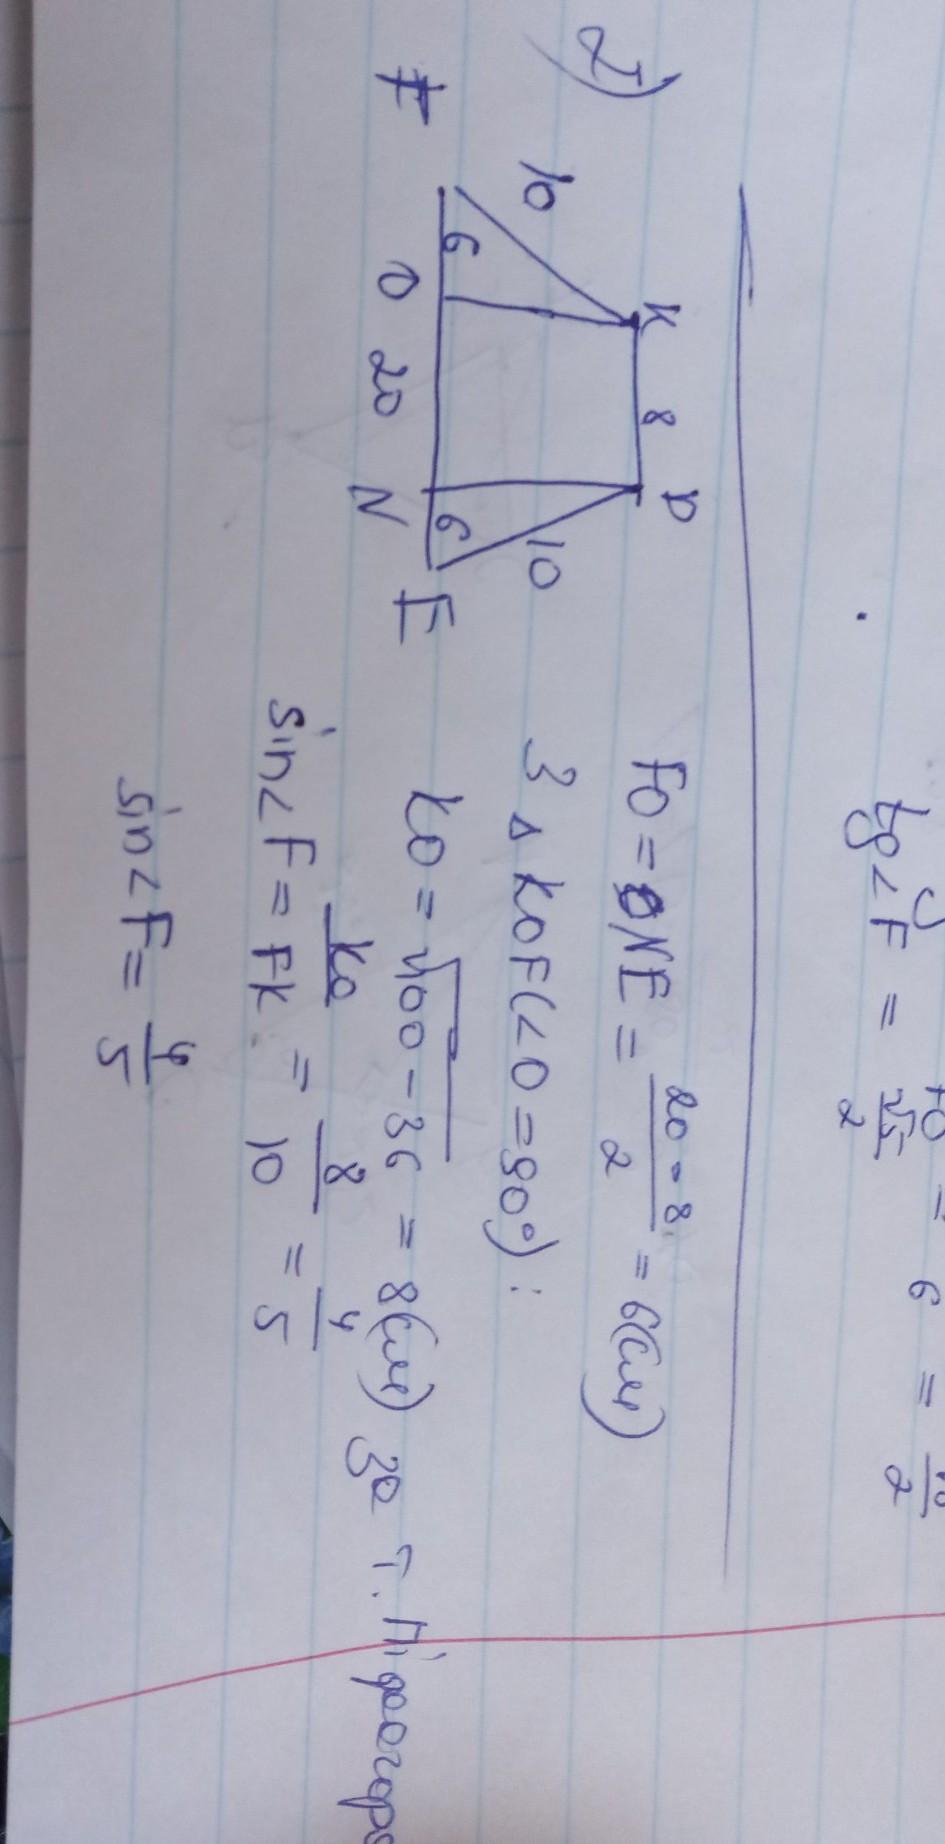 tg∠F = FO/(√5/2) = 6 = 10/2
2)
K 8 P
10 10
6 6
F O 20 N E
FO = NE = (20-8)/2 = 6(см)
З △ KOF(∠O=90°):
KO = √100-36 = 8(см) за т. Піфагора
sin∠F = KO/FK = 8/10 = 4/5
sin∠F = 4/5